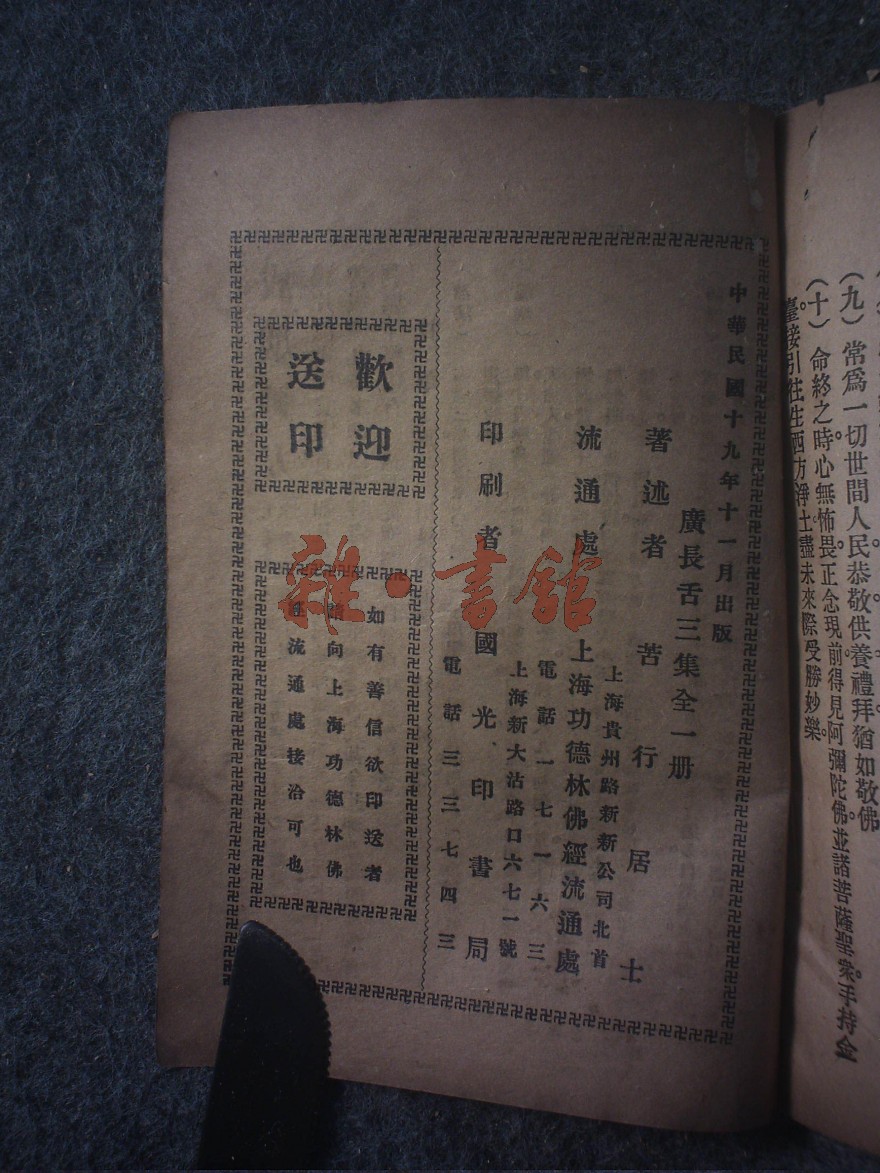 (九)常爲一切世間人民恭敬供養禮拜猶如敬佛。
(十)命終之時。心無怖畏。正念現前。得見阿彌陀佛。並諸菩薩聖衆。手持金
臺。接引往生西方淨土。盡未來際。受勝妙樂。
中華民國十九年十一月出版
廣長舌三集全一册
著述者 苦行居士
上海貴州路新新公司北首
流通處 上海功德林佛經流通處
電話一七一六三
上海新大沽路口六七一號
印刷者 國光印書局
電話三三七四三
歡迎
送印
如有善信欲印送者
請向上海功德林佛
經流通處接洽可也
雜·書館